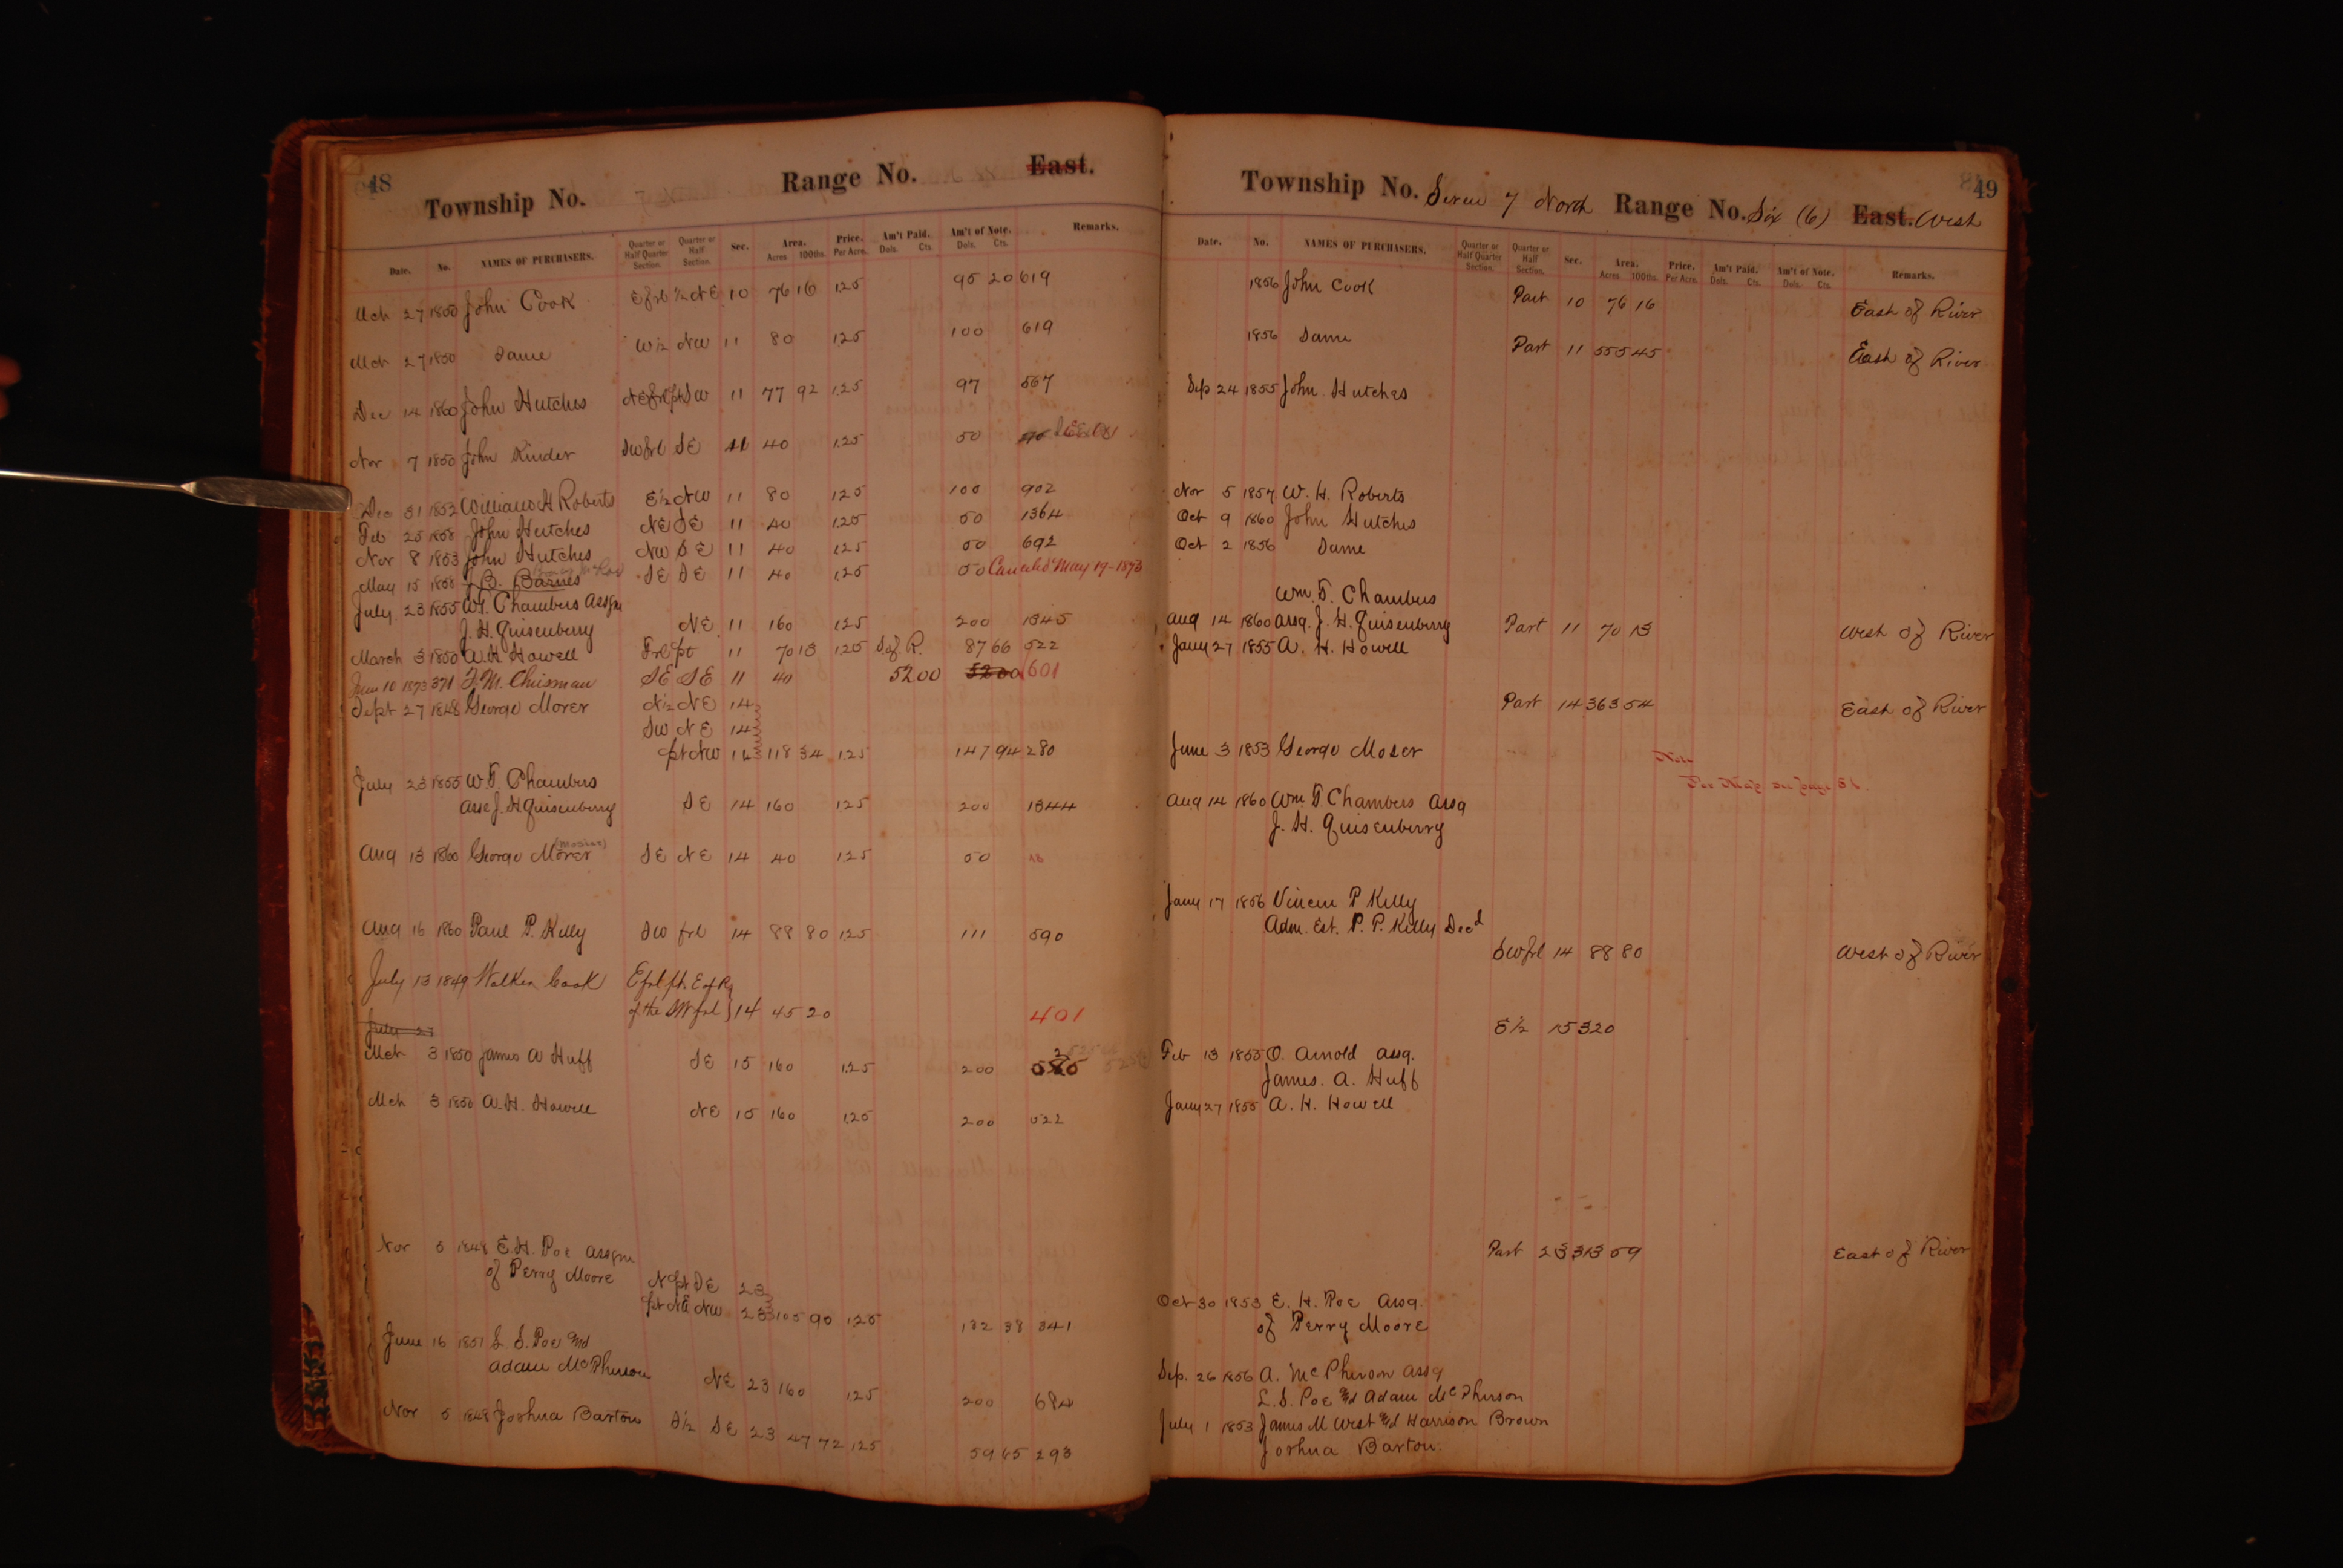 48
Township No. Range No. East.
Date. No. NAMES OF PURCHASERS. Quarter or Half Quarter Section. Quarter or Half Section. Sec. Area. Acres 100ths. Price. Per Acre. Am't Paid. Dols. Cts. Am't of Note. Dols. Cts. Remarks.
Mch 27 1850 John Cook E frl ½ NE 10 76 16 1.25 95 20 619
Mch 27 1850 Same W ½ NW 11 80 1.25 100 619
Dec 14 1860 John Hutches SW 11 77 92 1.25 97 567
Nov 7 1850 John Kinder SW frl SE 11 40 1.25 50
Dec 31 1852 William H Roberts E ½ NW 11 80 1.25 100 902
Feb 25 1858 John Hutches NE SE 11 40 1.25 50 1364
Nov 8 1853 John Hutches NW SE 11 40 1.25 50 692
May 15 1858 J. B. Barnes SE SE 11 40 1.25 50 Canceled May 19-1873
July 23 1855 W.T. Chambers Assgn
J. H. Quisenberry NE 11 160 1.25 200 1345
March 3 1850 A. H. Howell Frl pt 11 70 13 1.25 S of R. 87 66 522
June 10 1873 371 J. M. Chrisman SE SE 11 40 52 00 52 00 601
Sept 27 1848 George Morer N ½ NE 14
SW NE 14
pt NW 14 118 34 1.25 147 94 280
July 23 1855 W.T. Chambers
Asse J. H Quisenberry SE 14 160 1.25 200 1344
Aug 13 1860 George Morer SE NE 14 40 1.25 50
Aug 16 1860 Paul P. Kelly SW frl 14 88 80 1.25 111 590
July 13 1849 Walker Cook E frl pt. E of R
of the SW frl } 14 45 20 401
July 27
Mch 3 1850 James A Huff SE 15 160 1.25 200
Mch 3 1850 A. H. Howell NE 15 160 1.25 200 522
Nov 5 1848 E. H. Poe Assgne
of Perry Moore N pt SE 23
pt NE NW 23 105 90 1.25 132 38 341
June 16 1851 L. S. Poe and
Adam McPherson NE 23 160 1.25 200 684
Nov 5 1848 Joshua Barton S ½ SE 23 47 72 1.25 59 65 293
49
Township No. Seven 7 North Range No. Six (6) East. West
Date. No. NAMES OF PURCHASERS. Quarter or Half Quarter Section. Quarter or Half Section. Sec. Area. Acres. 100ths. Price. Per Acre. Am't Paid. Dols. Cts. Am't of Note. Dols. Cts. Remarks.
1856 John Cook Part 10 76 16 East of River
1856 Same Part 11 555 45 East of River
Sep 24 1855 John Hutches
Nov 5 1857 W. H. Roberts
Oct 9 1860 John Hutches
Oct 2 1856 Same
Wm. T. Chambers
Aug 14 1860 Assg. J. H. Quisenberry Part 11 70 13 West of River
Jany 27 1855 A. H. Howell
Part 14 363 54 East of River
June 3 1853 George Moser
Note
Aug 14 1860 Wm T. Chambers Assg
J. H. Quisenberry
Jany 17 1856 Vincent P Kelly
Adm. Est. P. P. Kelly Decd
SW frl 14 88 80 West of River
E ½ 15 320
Feb 13 1855 O. Arnold Assg.
James. A. Huff
Jany 27 1855 A. H. Howell
Part 23 313 59 East of River
Oct 30 1853 E. H. Poe Assg.
of Perry Moore
Sep. 26 1856 A. McPherson Assg
L. S. Poe and Adam McPherson
July 1 1853 James M West and Harrison Brown
Joshua Barton.